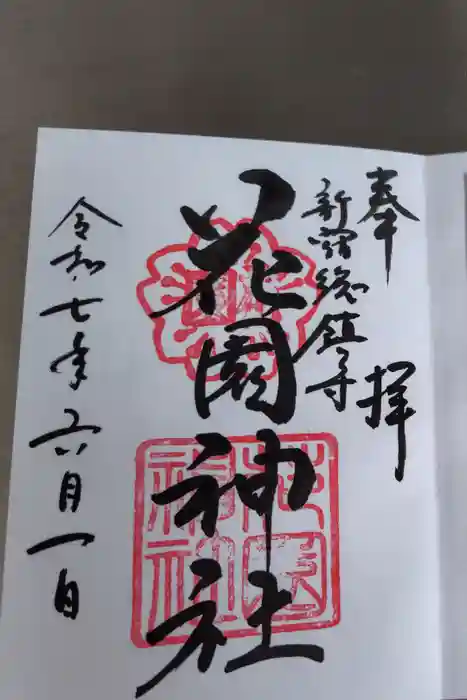 奉拝
新宿総鎮守
花園神社
花園
神社
令和七年六月一日